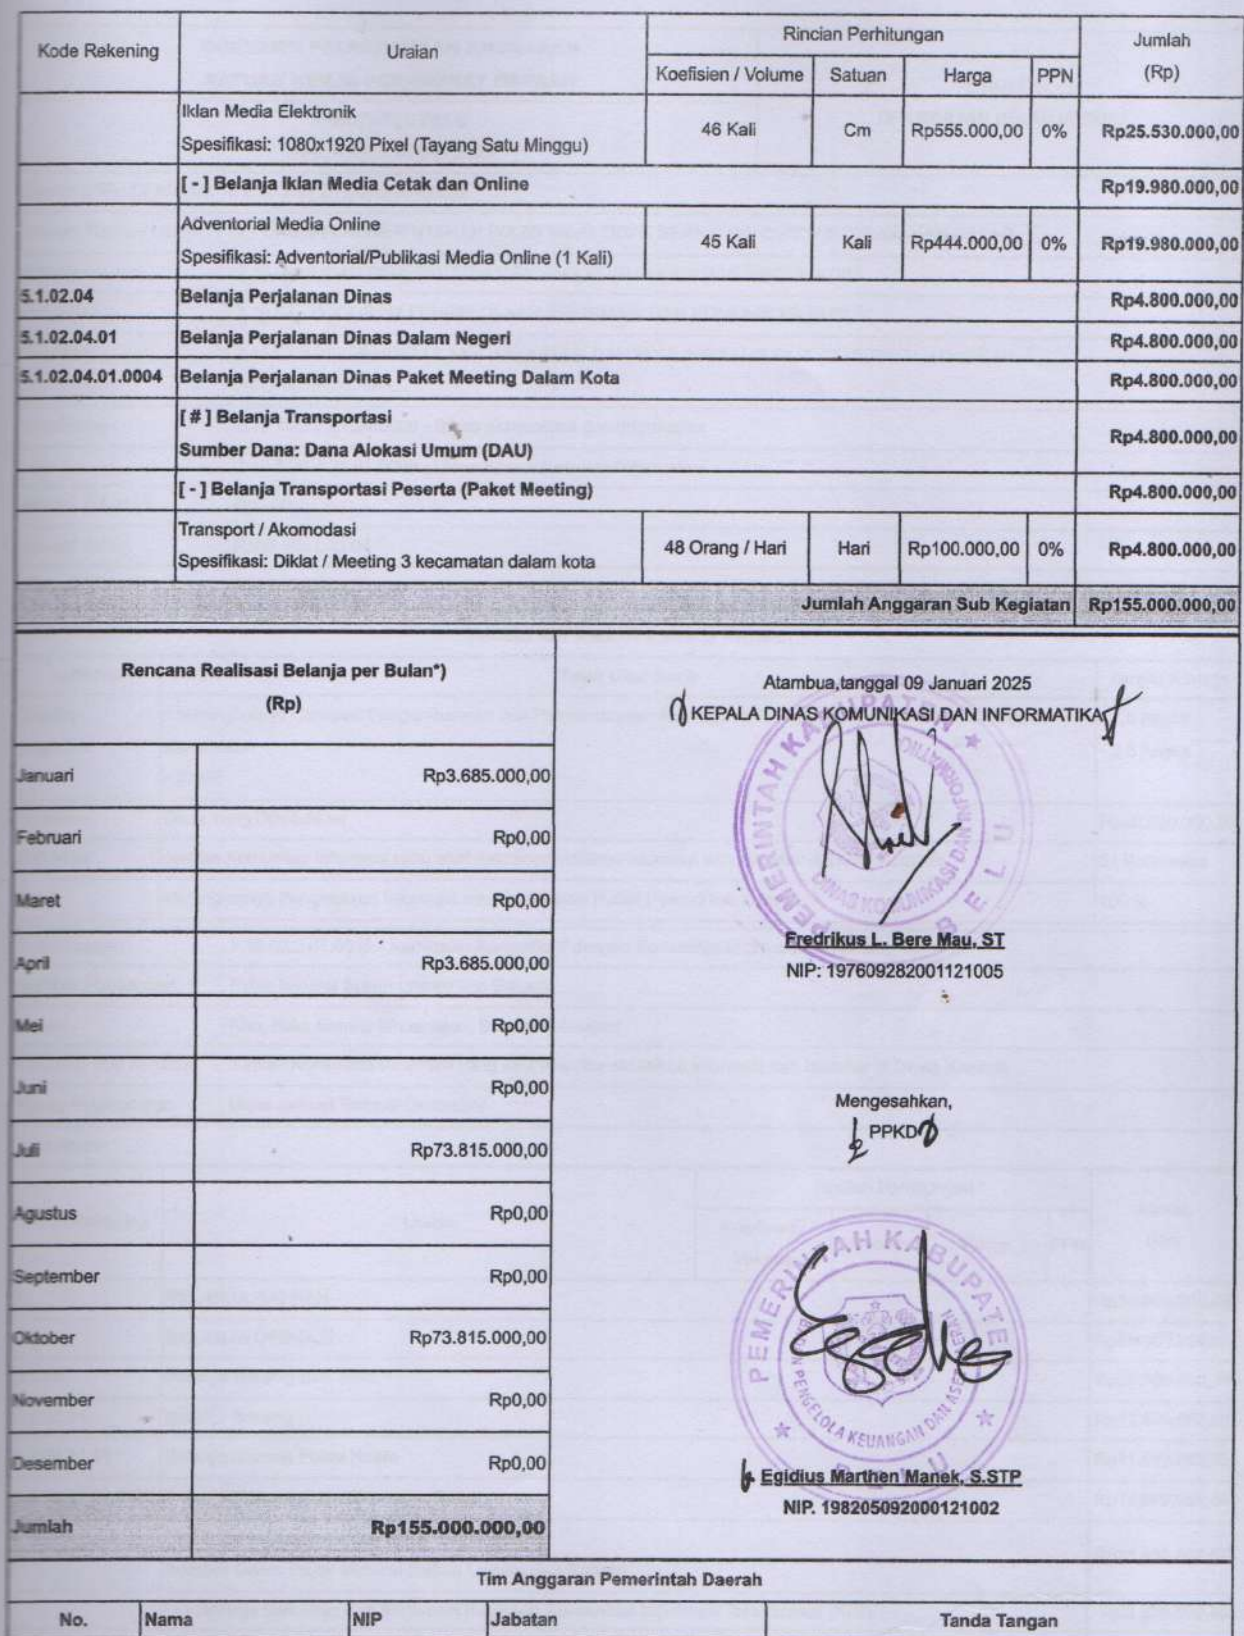 Kode Rekening Uraian Rincian Perhitungan Jumlah (Rp)
Koefisien / Volume Satuan Harga PPN
Iklan Media Elektronik
Spesifikasi: 1080x1920 Pixel (Tayang Satu Minggu) 46 Kali Cm Rp555.000,00 0% Rp25.530.000,00
[ - ] Belanja Iklan Media Cetak dan Online Rp19.980.000,00
Adventorial Media Online
Spesifikasi: Adventorial/Publikasi Media Online (1 Kali) 45 Kali Kali Rp444.000,00 0% Rp19.980.000,00
5.1.02.04 Belanja Perjalanan Dinas Rp4.800.000,00
5.1.02.04.01 Belanja Perjalanan Dinas Dalam Negeri Rp4.800.000,00
5.1.02.04.01.0004 Belanja Perjalanan Dinas Paket Meeting Dalam Kota Rp4.800.000,00
[ # ] Belanja Transportasi
Sumber Dana: Dana Alokasi Umum (DAU) Rp4.800.000,00
[ - ] Belanja Transportasi Peserta (Paket Meeting) Rp4.800.000,00
Transport / Akomodasi
Spesifikasi: Diklat / Meeting 3 kecamatan dalam kota 48 Orang / Hari Hari Rp100.000,00 0% Rp4.800.000,00
Jumlah Anggaran Sub Kegiatan Rp155.000.000,00
Rencana Realisasi Belanja per Bulan*)
(Rp)
Januari Rp3.685.000,00
Februari Rp0,00
Maret Rp0,00
April Rp3.685.000,00
Mei Rp0,00
Juni Rp0,00
Juli Rp73.815.000,00
Agustus Rp0,00
September Rp0,00
Oktober Rp73.815.000,00
November Rp0,00
Desember Rp0,00
Jumlah Rp155.000.000,00
Atambua,tanggal 09 Januari 2025
KEPALA DINAS KOMUNIKASI DAN INFORMATIKA
PEMERINTAH KABUPATEN
DINAS KOMUNIKASI DAN INFORMATIKA
BELU
Fredrikus L. Bere Mau, ST
NIP: 197609282001121005
Mengesahkan,
PPKD
PEMERINTAH KABUPATEN
PENGELOLA KEUANGAN DAN ASET
BELU
Egidius Marthen Manek, S.STP
NIP. 198205092000121002
Tim Anggaran Pemerintah Daerah
No. Nama NIP Jabatan Tanda Tangan